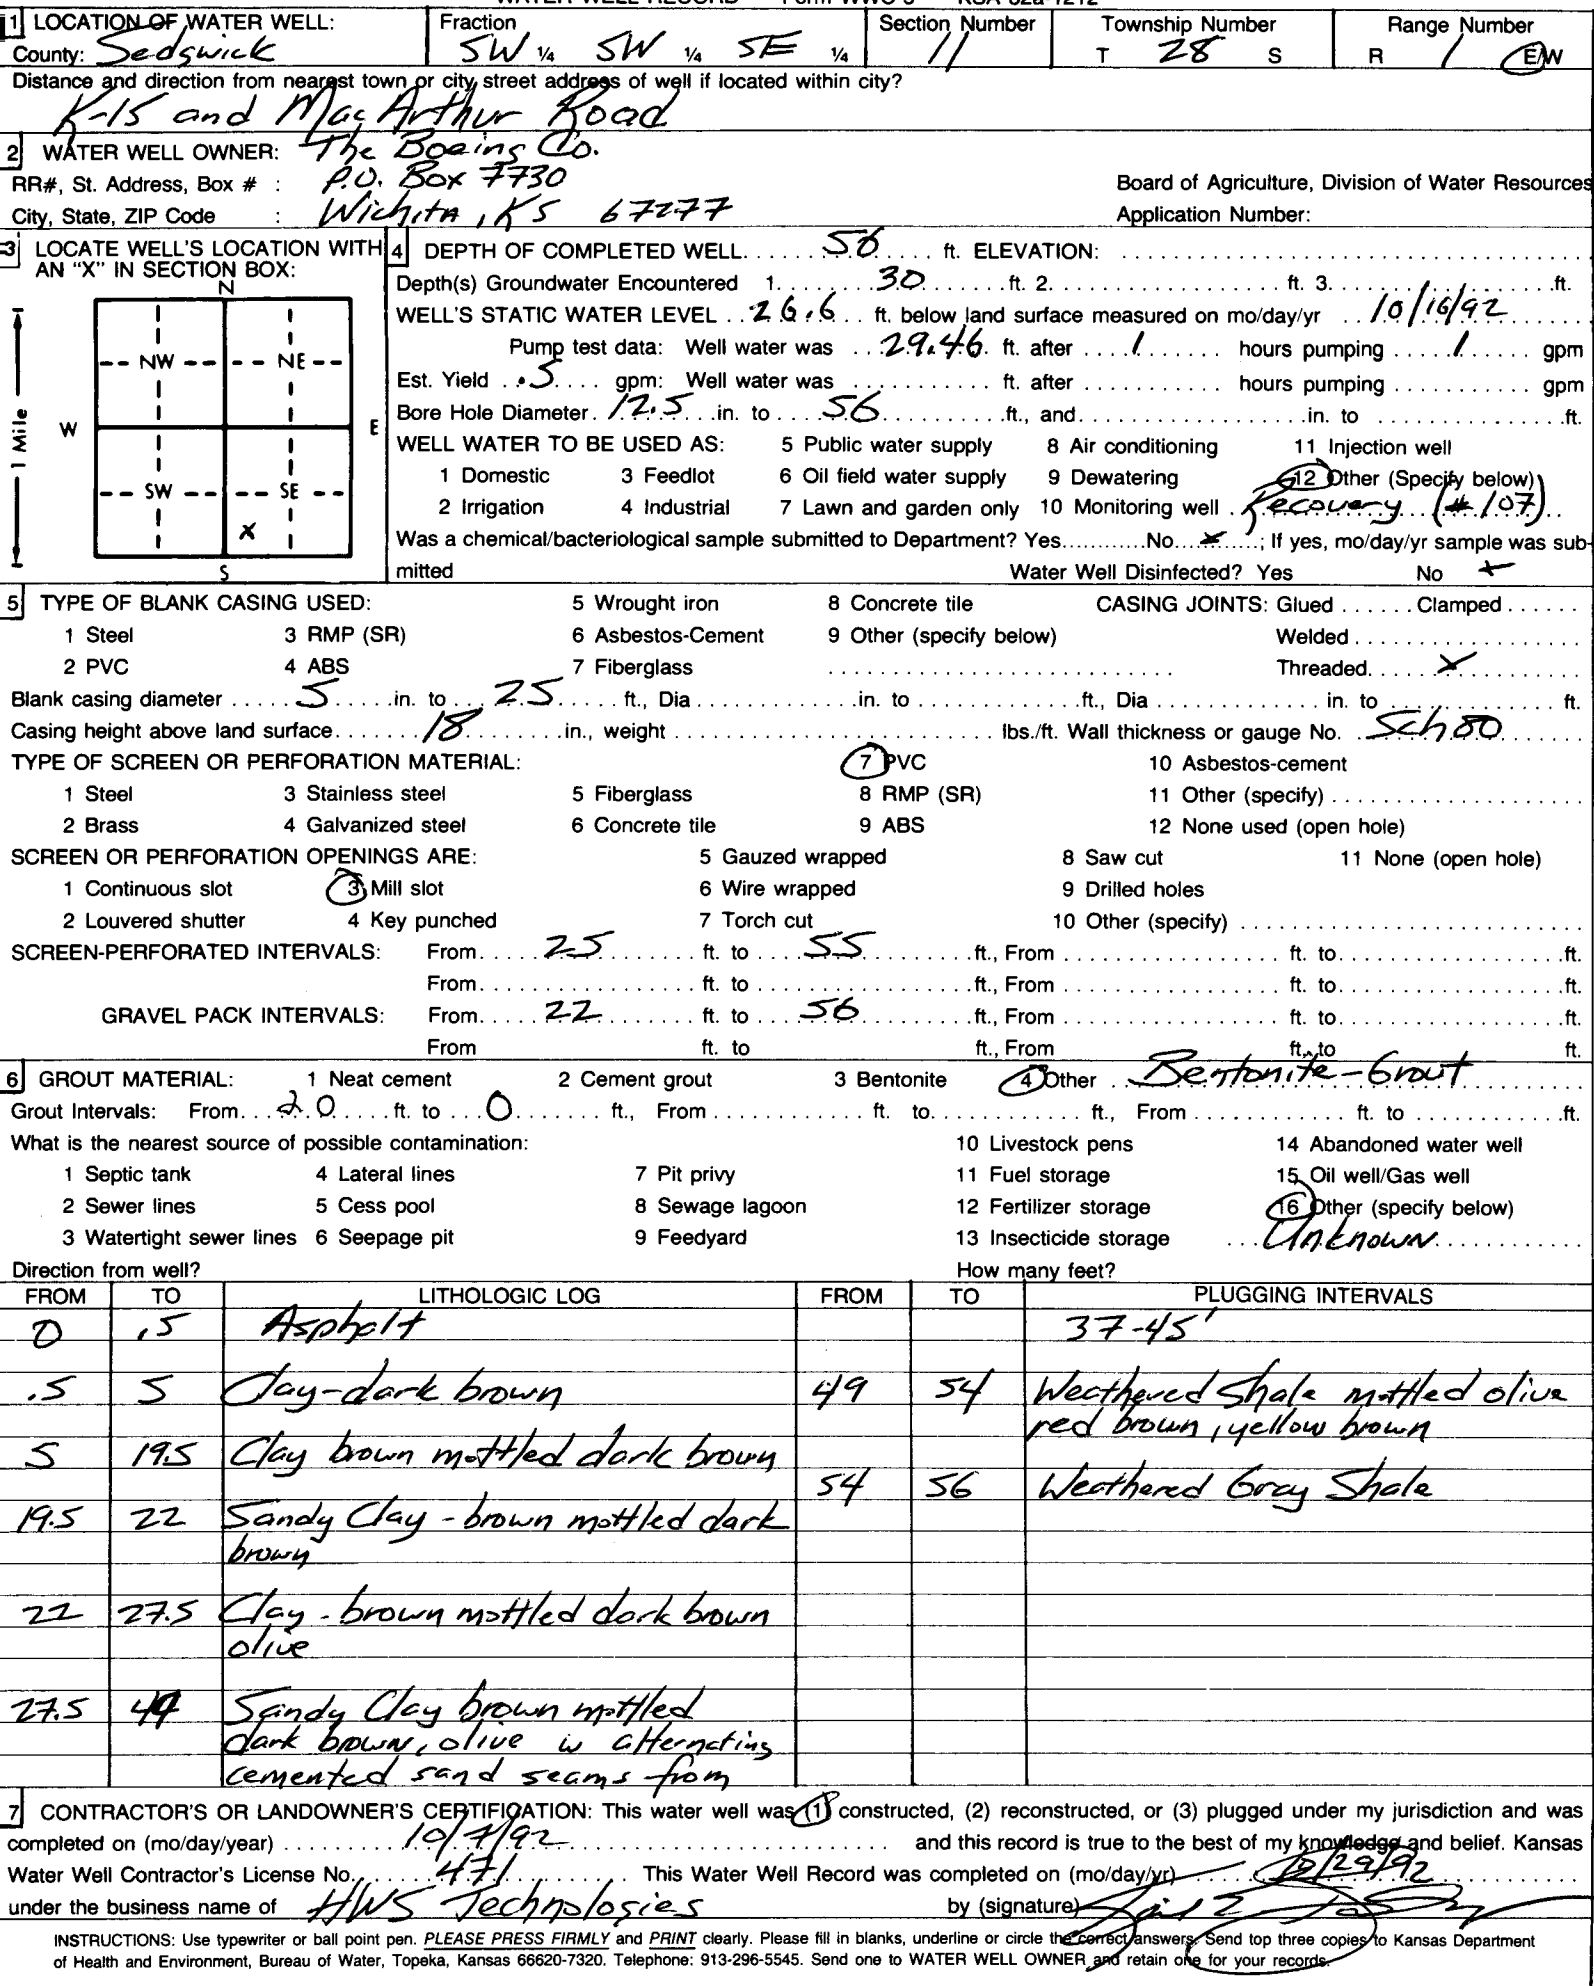 WATER WELL RECORD Form WWC-5 KSA 82a-1212
1 LOCATION OF WATER WELL: Fraction Section Number Township Number Range Number
County: Sedgwick SW ¼ SW ¼ SE ¼ 11 T 28 S R 1 E/W
Distance and direction from nearest town or city street address of well if located within city?
K-15 and MacArthur Road
2 WATER WELL OWNER: The Boeing Co.
RR#, St. Address, Box # : P.O. Box 7730 Board of Agriculture, Division of Water Resources
City, State, ZIP Code : Wichita, KS 67277 Application Number:
3 LOCATE WELL'S LOCATION WITH AN "X" IN SECTION BOX:
N
NW NE
W E
SW SE
X
S
1 Mile
4 DEPTH OF COMPLETED WELL 56 ft. ELEVATION:
Depth(s) Groundwater Encountered 1. 30 ft. 2. ft. 3. ft.
WELL'S STATIC WATER LEVEL 26.6 ft. below land surface measured on mo/day/yr 10/16/92
Pump test data: Well water was 29.46 ft. after 1 hours pumping 1 gpm
Est. Yield .5 gpm: Well water was ft. after hours pumping gpm
Bore Hole Diameter 12.5 in. to 56 ft., and in. to ft.
WELL WATER TO BE USED AS: 5 Public water supply 8 Air conditioning 11 Injection well
1 Domestic 3 Feedlot 6 Oil field water supply 9 Dewatering 12 Other (Specify below)
2 Irrigation 4 Industrial 7 Lawn and garden only 10 Monitoring well Recovery (#107)
Was a chemical/bacteriological sample submitted to Department? Yes No X ; If yes, mo/day/yr sample was sub-
mitted Water Well Disinfected? Yes No X
5 TYPE OF BLANK CASING USED: 5 Wrought iron 8 Concrete tile CASING JOINTS: Glued Clamped
1 Steel 3 RMP (SR) 6 Asbestos-Cement 9 Other (specify below) Welded
2 PVC 4 ABS 7 Fiberglass Threaded X
Blank casing diameter 5 in. to 25 ft., Dia in. to ft., Dia in. to ft.
Casing height above land surface 18 in., weight lbs./ft. Wall thickness or gauge No. Sch 80
TYPE OF SCREEN OR PERFORATION MATERIAL: 7 PVC 10 Asbestos-cement
1 Steel 3 Stainless steel 5 Fiberglass 8 RMP (SR) 11 Other (specify)
2 Brass 4 Galvanized steel 6 Concrete tile 9 ABS 12 None used (open hole)
SCREEN OR PERFORATION OPENINGS ARE: 5 Gauzed wrapped 8 Saw cut 11 None (open hole)
1 Continuous slot 3 Mill slot 6 Wire wrapped 9 Drilled holes
2 Louvered shutter 4 Key punched 7 Torch cut 10 Other (specify)
SCREEN-PERFORATED INTERVALS: From 25 ft. to 55 ft., From ft. to ft.
From ft. to ft., From ft. to ft.
GRAVEL PACK INTERVALS: From 22 ft. to 56 ft., From ft. to ft.
From ft. to ft., From ft. to ft.
6 GROUT MATERIAL: 1 Neat cement 2 Cement grout 3 Bentonite 4 Other Bentonite-Grout
Grout Intervals: From 20 ft. to 0 ft., From ft. to ft., From ft. to ft.
What is the nearest source of possible contamination: 10 Livestock pens 14 Abandoned water well
1 Septic tank 4 Lateral lines 7 Pit privy 11 Fuel storage 15 Oil well/Gas well
2 Sewer lines 5 Cess pool 8 Sewage lagoon 12 Fertilizer storage 16 Other (specify below)
3 Watertight sewer lines 6 Seepage pit 9 Feedyard 13 Insecticide storage Unknown
Direction from well? How many feet?
FROM TO LITHOLOGIC LOG FROM TO PLUGGING INTERVALS
0 .5 Asphalt 37-45'
.5 5 Clay-dark brown 49 54 Weathered Shale mottled olive
red brown, yellow brown
5 19.5 Clay brown mottled dark brown
54 56 Weathered Gray Shale
19.5 22 Sandy Clay - brown mottled dark
brown
22 27.5 Clay - brown mottled dark brown
olive
27.5 49 Sandy Clay brown mottled
dark brown, olive w alternating
cemented sand seams from
7 CONTRACTOR'S OR LANDOWNER'S CERTIFICATION: This water well was (1) constructed, (2) reconstructed, or (3) plugged under my jurisdiction and was
completed on (mo/day/year) 10/7/92 and this record is true to the best of my knowledge and belief. Kansas
Water Well Contractor's License No. 471 This Water Well Record was completed on (mo/day/yr) 10/29/92
under the business name of HWS Technologies by (signature)
INSTRUCTIONS: Use typewriter or ball point pen. PLEASE PRESS FIRMLY and PRINT clearly. Please fill in blanks, underline or circle the correct answers. Send top three copies to Kansas Department
of Health and Environment, Bureau of Water, Topeka, Kansas 66620-7320. Telephone: 913-296-5545. Send one to WATER WELL OWNER and retain one for your records.